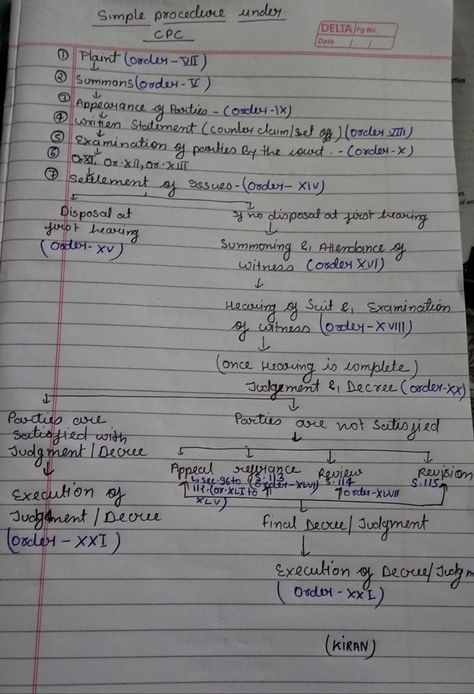 Simple procedure under
CPC
DELTA Pg No.
Date
① Plaint (order-VII)
② Summons (order-V)
③ Appearance of Parties - (order-IX)
④ Written Statement (counter claim/set of) (order VIII)
⑤ Examination of parties By the court. - (order-X)
⑥ Or XI, Or. XII, Or. XIII
⑦ Settlement of Issues - (order-XIV)
Disposal at
first hearing
(order-XV)
If no disposal at first hearing
Summoning & Attendance of
witness (order XVI)
Hearing of Suit & Examination
of witness (order-XVIII)
(once Hearing is complete)
Judgement & Decree (order-XX)
Parties are
satisfied with
Judgment/Decree
Execution of
Judgment/Decree
(order-XXI)
Parties are not satisfied
Appeal
sec-96 to
112, (or.XLI to
XLV)
refrance
S.113
(order-XLVI)
Review
S.114
order-XLVII
Revision
S.115
Final Decree/Judgment
Execution of Decree/Judgm
(order-XXI)
(KIRAN)